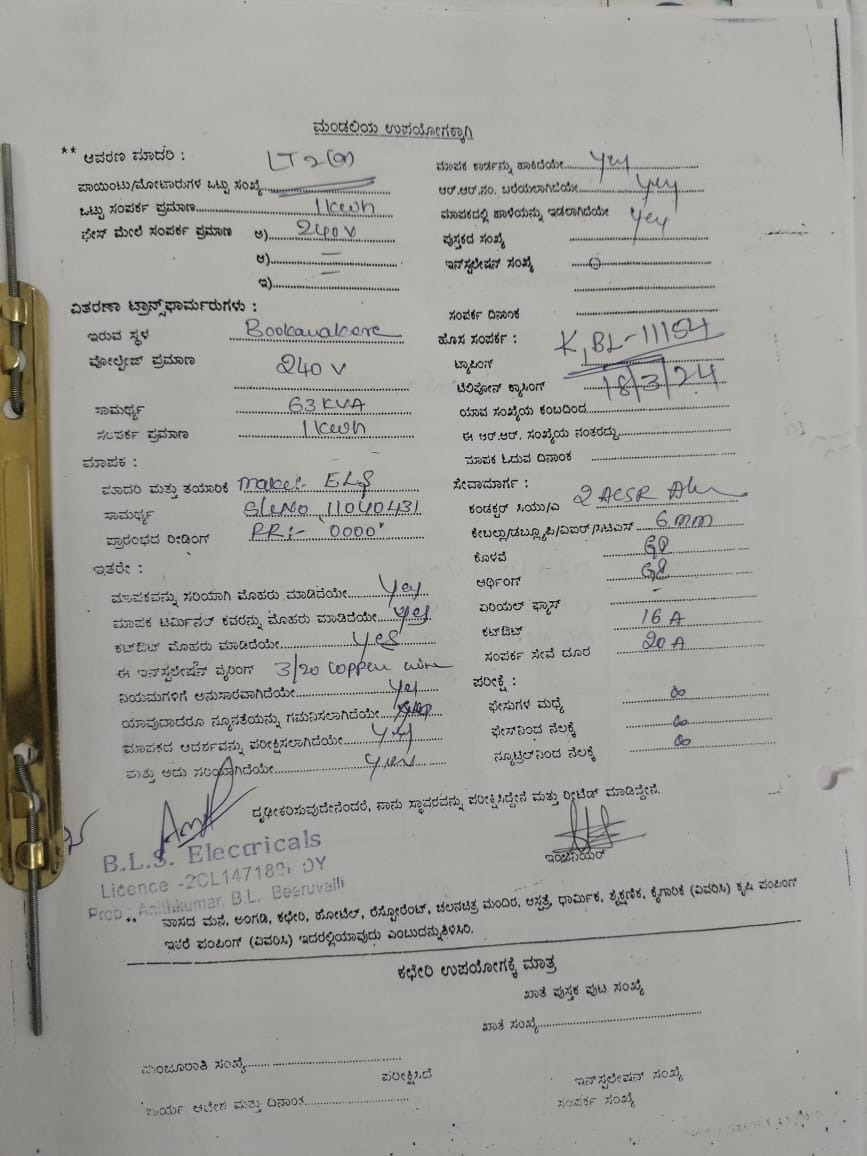 ಮಂಡಲಿಯ ಉಪಯೋಗಕ್ಕಾಗಿ
** ಆವರಣ ಮಾದರಿ : LT 2(a)
ಪಾಯಿಂಟು/ಮೋಟಾರುಗಳ ಒಟ್ಟು ಸಂಖ್ಯೆ
ಒಟ್ಟು ಸಂಪರ್ಕ ಪ್ರಮಾಣ 1 kwh
ಫೇಸ್ ಮೇಲೆ ಸಂಪರ್ಕ ಪ್ರಮಾಣ ಅ) 240 V
ಆ)
ಇ)
ವಿತರಣಾ ಟ್ರಾನ್ಸ್‌ಫಾರ್ಮರುಗಳು :
ಇರುವ ಸ್ಥಳ
ವೋಲ್ಟೇಜ್ ಪ್ರಮಾಣ 240 V
ಸಾಮರ್ಥ್ಯ 63 KVA
ಸಂಪರ್ಕ ಪ್ರಮಾಣ 1 kwh
ಮಾಪಕ :
ಮಾದರಿ ಮತ್ತು ತಯಾರಿಕೆ make:- ELS
ಸಾಮರ್ಥ್ಯ Sl.No 11040431
ಪ್ರಾರಂಭದ ರೀಡಿಂಗ್ PR:- 0000
ಇತರೇ :
ಮಾಪಕವನ್ನು ಸರಿಯಾಗಿ ಮೊಹರು ಮಾಡಿದೆಯೇ Yes
ಮಾಪಕ ಟರ್ಮಿನಲ್ ಕವರನ್ನು ಮೊಹರು ಮಾಡಿದೆಯೇ Yes
ಕಟ್‌ಔಟ್ ಮೊಹರು ಮಾಡಿದೆಯೇ Yes
ಈ ಇನ್‌ಸ್ಟಲೇಷನ್ ವೈರಿಂಗ್ 3/20 copper wire
ನಿಯಮಗಳಿಗೆ ಅನುಸಾರವಾಗಿದೆಯೇ Yes
ಯಾವುದಾದರೂ ನ್ಯೂನತೆಯನ್ನು ಗಮನಿಸಲಾಗಿದೆಯೇ
ಮಾಪಕದ ಆದರ್ಶವನ್ನು ಪರೀಕ್ಷಿಸಲಾಗಿದೆಯೇ Yes
ಮತ್ತು ಅದು ಸರಿಯಾಗಿದೆಯೇ
ಮಾಪಕ ಕಾರ್ಡನ್ನು ಹಾಕಿದೆಯೇ Yes
ಆರ್.ಆರ್.ನಂ. ಬರೆಯಲಾಗಿದೆಯೇ Yes
ಮಾಪಕದಲ್ಲಿ ಹಾಳೆಯನ್ನು ಇಡಲಾಗಿದೆಯೇ Yes
ಪುಸ್ತಕದ ಸಂಖ್ಯೆ
ಇನ್‌ಸ್ಟಲೇಷನ್ ಸಂಖ್ಯೆ
ಸಂಪರ್ಕ ದಿನಾಂಕ
ಹೊಸ ಸಂಪರ್ಕ : K,BL-11154
ಟ್ಯಾಪಿಂಗ್
ಟೆಲಿಫೋನ್ ಕ್ರಾಸಿಂಗ್ 18/3/24
ಯಾವ ಸಂಖ್ಯೆಯ ಕಂಬದಿಂದ
ಈ ಆರ್.ಆರ್. ಸಂಖ್ಯೆಯ ನಂತರದ್ದು
ಮಾಪಕ ಓದುವ ದಿನಾಂಕ
ಸೇವಾಮಾರ್ಗ :
ಕಂಡಕ್ಟರ್ ಸಿಯು/ಎ 2 ACSR
ಕೇಬಲ್ಲು/ಡಬ್ಲ್ಯೂಪಿ/ವಿಐಆರ್/ಸಿಟಿಎಸ್ 6 mm
ಕೊಳವೆ
ಆರ್ಥಿಂಗ್
ಏರಿಯಲ್ ಫ್ಯೂಸ್ -
ಕಟ್‌ಔಟ್ 16 A
ಸಂಪರ್ಕ ಸೇವೆ ದೂರ 20 A
ಪರೀಕ್ಷೆ :
ಫೇಸುಗಳ ಮಧ್ಯೆ ∞
ಫೇಸ್‌ನಿಂದ ನೆಲಕ್ಕೆ ∞
ನ್ಯೂಟ್ರಲ್‌ನಿಂದ ನೆಲಕ್ಕೆ ∞
ದೃಢೀಕರಿಸುವುದೇನೆಂದರೆ, ನಾನು ಸ್ಥಾವರವನ್ನು ಪರೀಕ್ಷಿಸಿದ್ದೇನೆ ಮತ್ತು ರೀಟೆಡ್ ಮಾಡಿದ್ದೇನೆ.
ಇಂಜಿನಿಯರ್
B.L.S. Electricals
Licence -2CL14718
Prop : Anithkumar. B.L. Beeruvalli
** ವಾಸದ ಮನೆ, ಅಂಗಡಿ, ಕಛೇರಿ, ಹೋಟೆಲ್, ರೆಸ್ಟೋರೆಂಟ್, ಚಲನಚಿತ್ರ ಮಂದಿರ, ಆಸ್ಪತ್ರೆ, ಧಾರ್ಮಿಕ, ಶೈಕ್ಷಣಿಕ, ಕೈಗಾರಿಕೆ (ವಿವರಿಸಿ) ಕೃಷಿ ಪಂಪಿಂಗ್
ಇತರೆ ಪಂಪಿಂಗ್ (ವಿವರಿಸಿ) ಇದರಲ್ಲಿಯಾವುದು ಎಂಬುದನ್ನುತಿಳಿಸಿರಿ.
ಕಛೇರಿ ಉಪಯೋಗಕ್ಕೆ ಮಾತ್ರ
ಖಾತೆ ಪುಸ್ತಕ ಪುಟ ಸಂಖ್ಯೆ
ಖಾತೆ ಸಂಖ್ಯೆ
ಮಂಜೂರಾತಿ ಸಂಖ್ಯೆ
ಪರೀಕ್ಷಿಸಿದೆ
ಇನ್‌ಸ್ಟಲೇಷನ್ ಸಂಖ್ಯೆ
ಕಾರ್ಯ ಆದೇಶ ಮತ್ತು ದಿನಾಂಕ
ಸಂಪರ್ಕ ಸಂಖ್ಯೆ